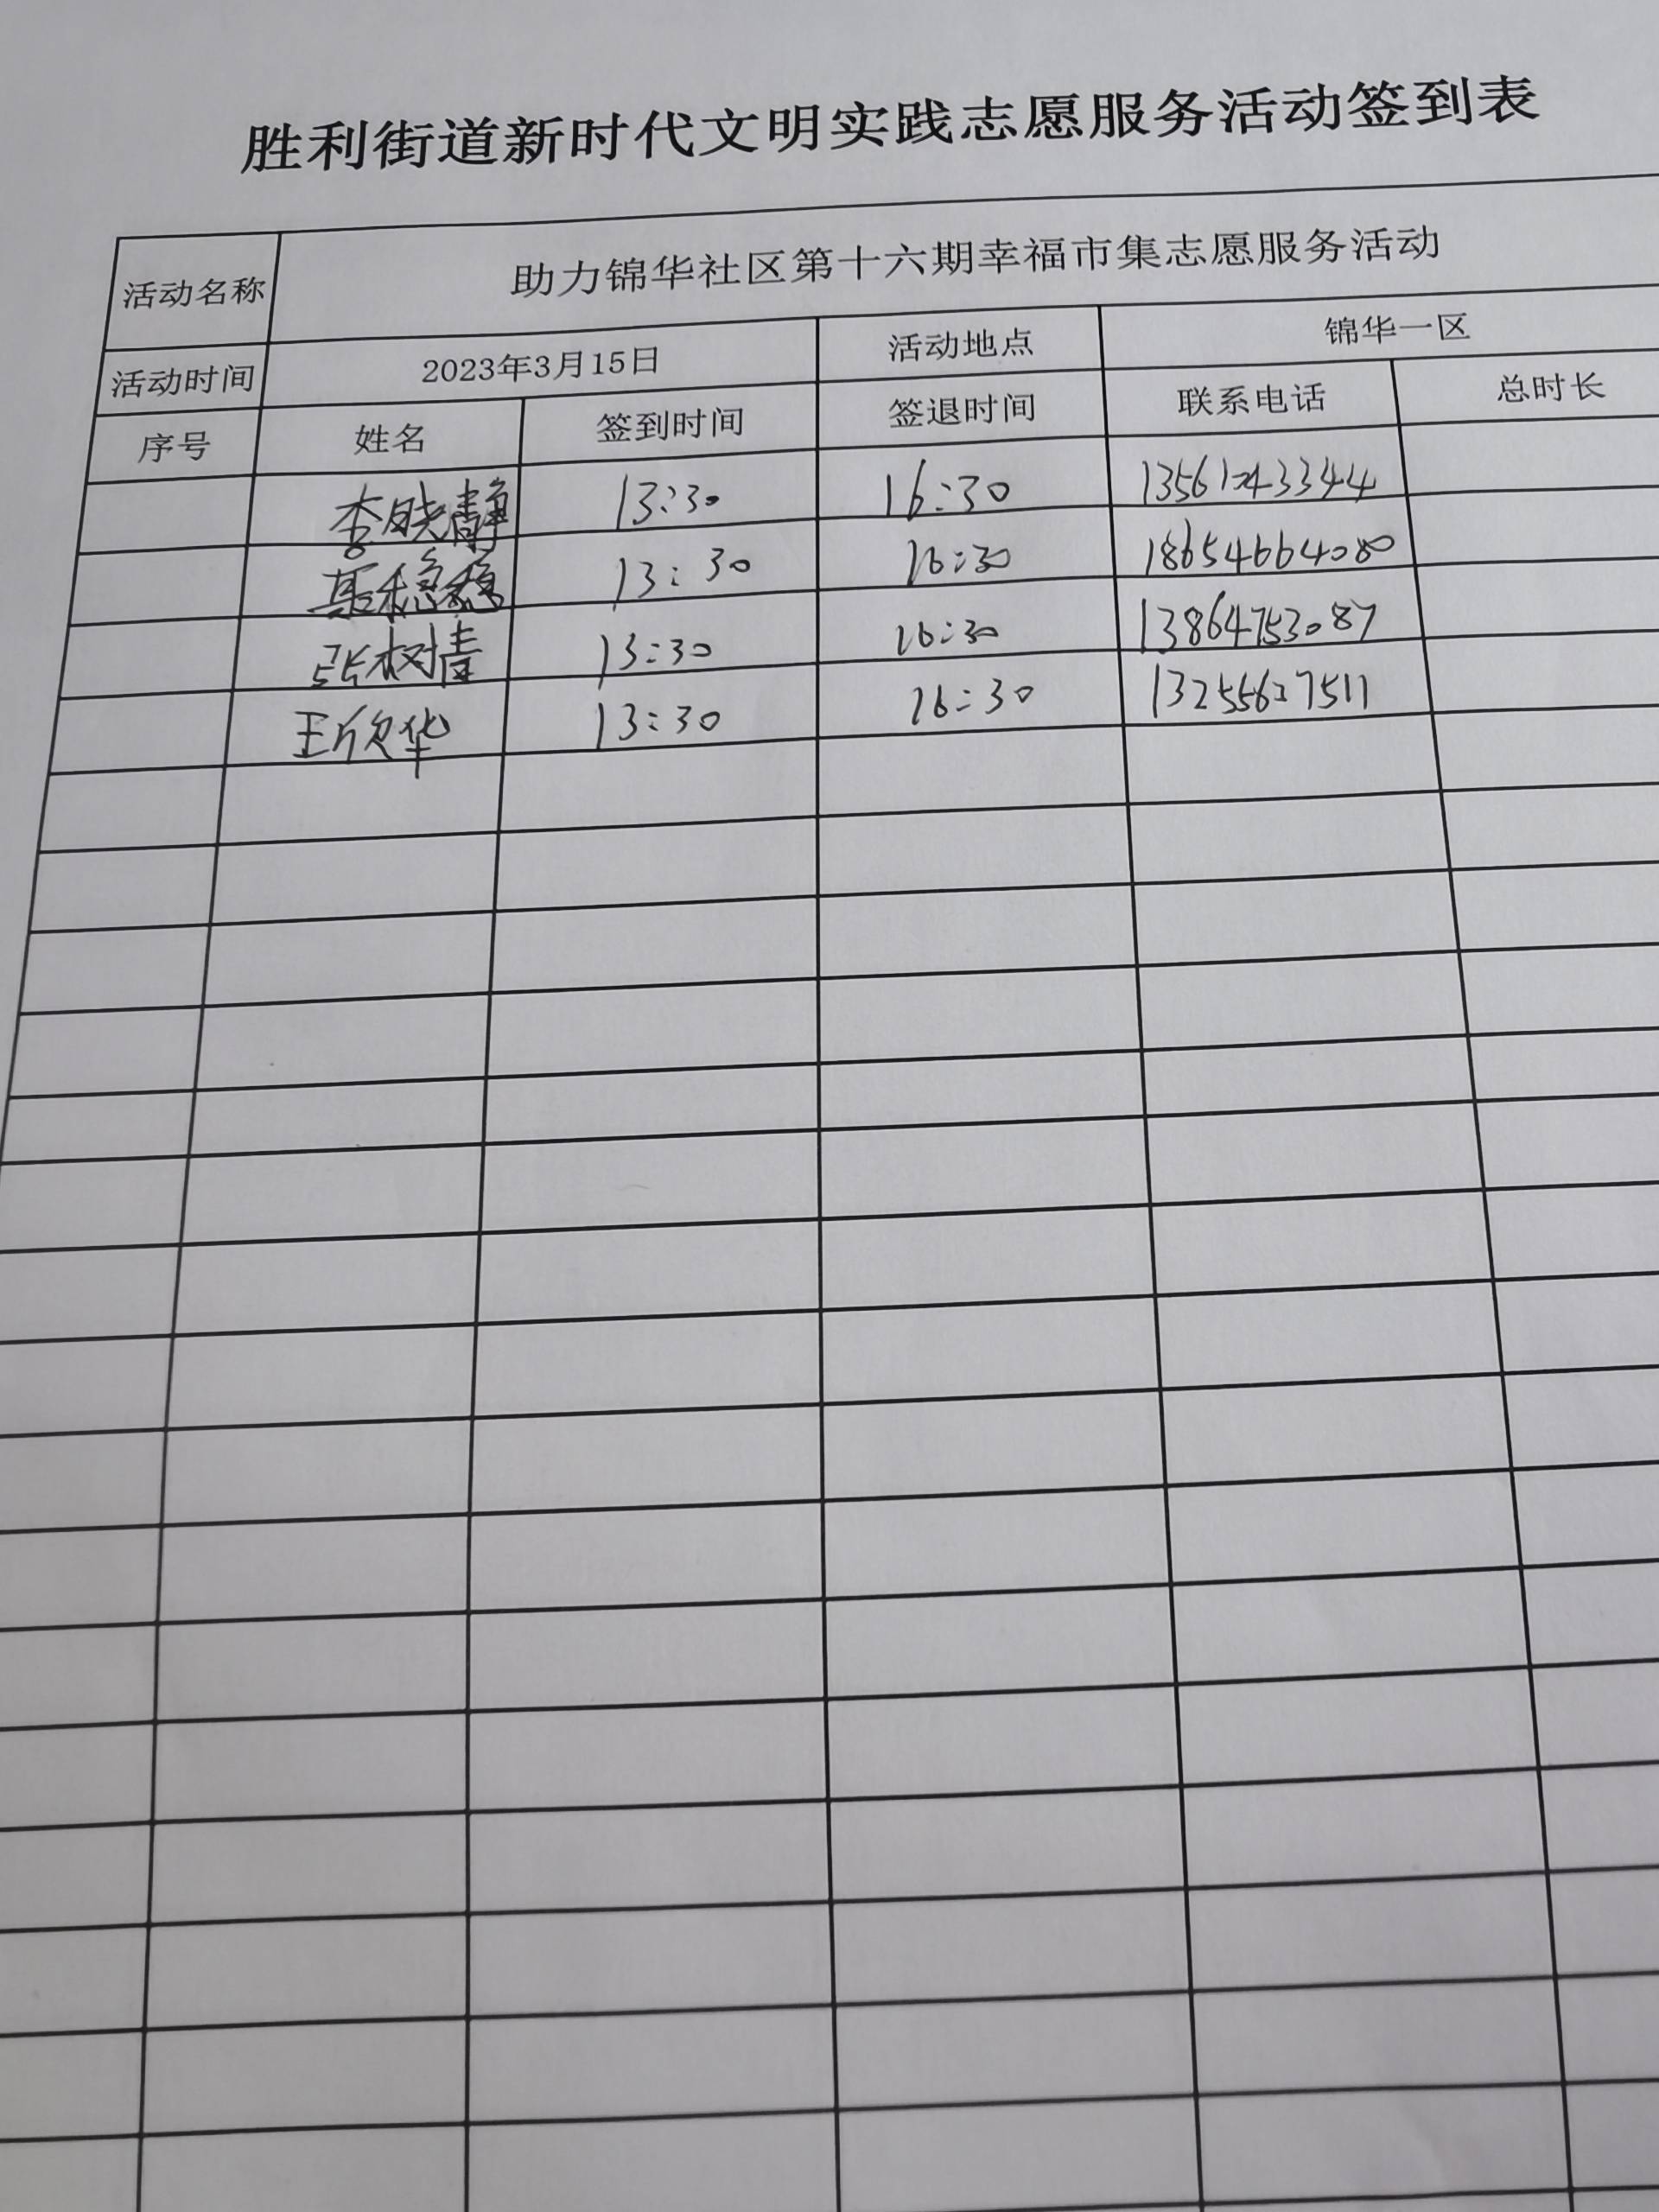 胜利街道新时代文明实践志愿服务活动签到表
活动名称 助力锦华社区第十六期幸福市集志愿服务活动
活动时间 2023年3月15日 活动地点 锦华一区
序号 姓名 签到时间 签退时间 联系电话 总时长
李晓静 13:30 16:30
稳稳 13:30 16:30 18654664080
张树青 13:30 16:30 13864753087
王欣华 13:30 16:30 13255627511